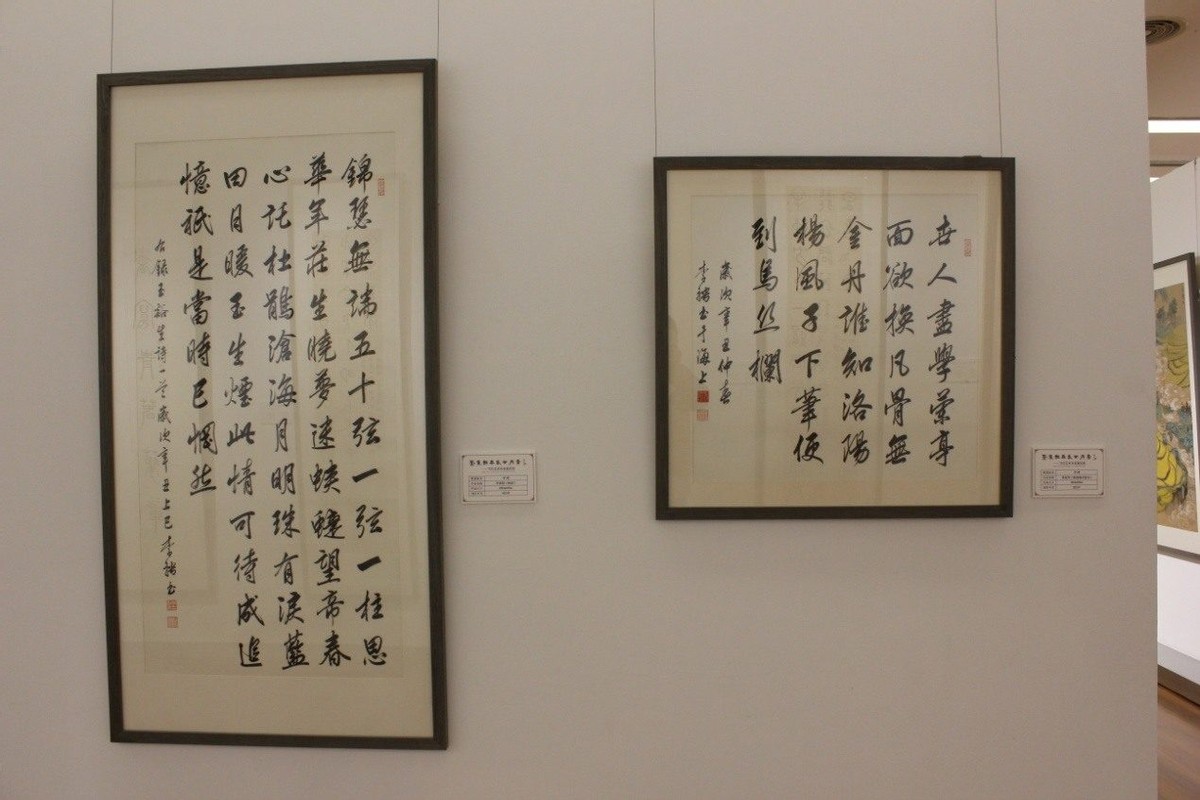 錦瑟無端五十弦一弦一柱思
華年莊生曉夢迷蛺蝶望帝春
心託杜鵑滄海月明珠有淚藍
田日暖玉生煙此情可待成追
憶祇是當時已惘然
右錄玉谿生詩一首歲次辛丑上巳李書
世人盡學蘭亭
面欲換凡骨無
金丹誰知洛陽
楊風子下筆便
到烏絲欄
歲次辛丑仲春
李書于海上